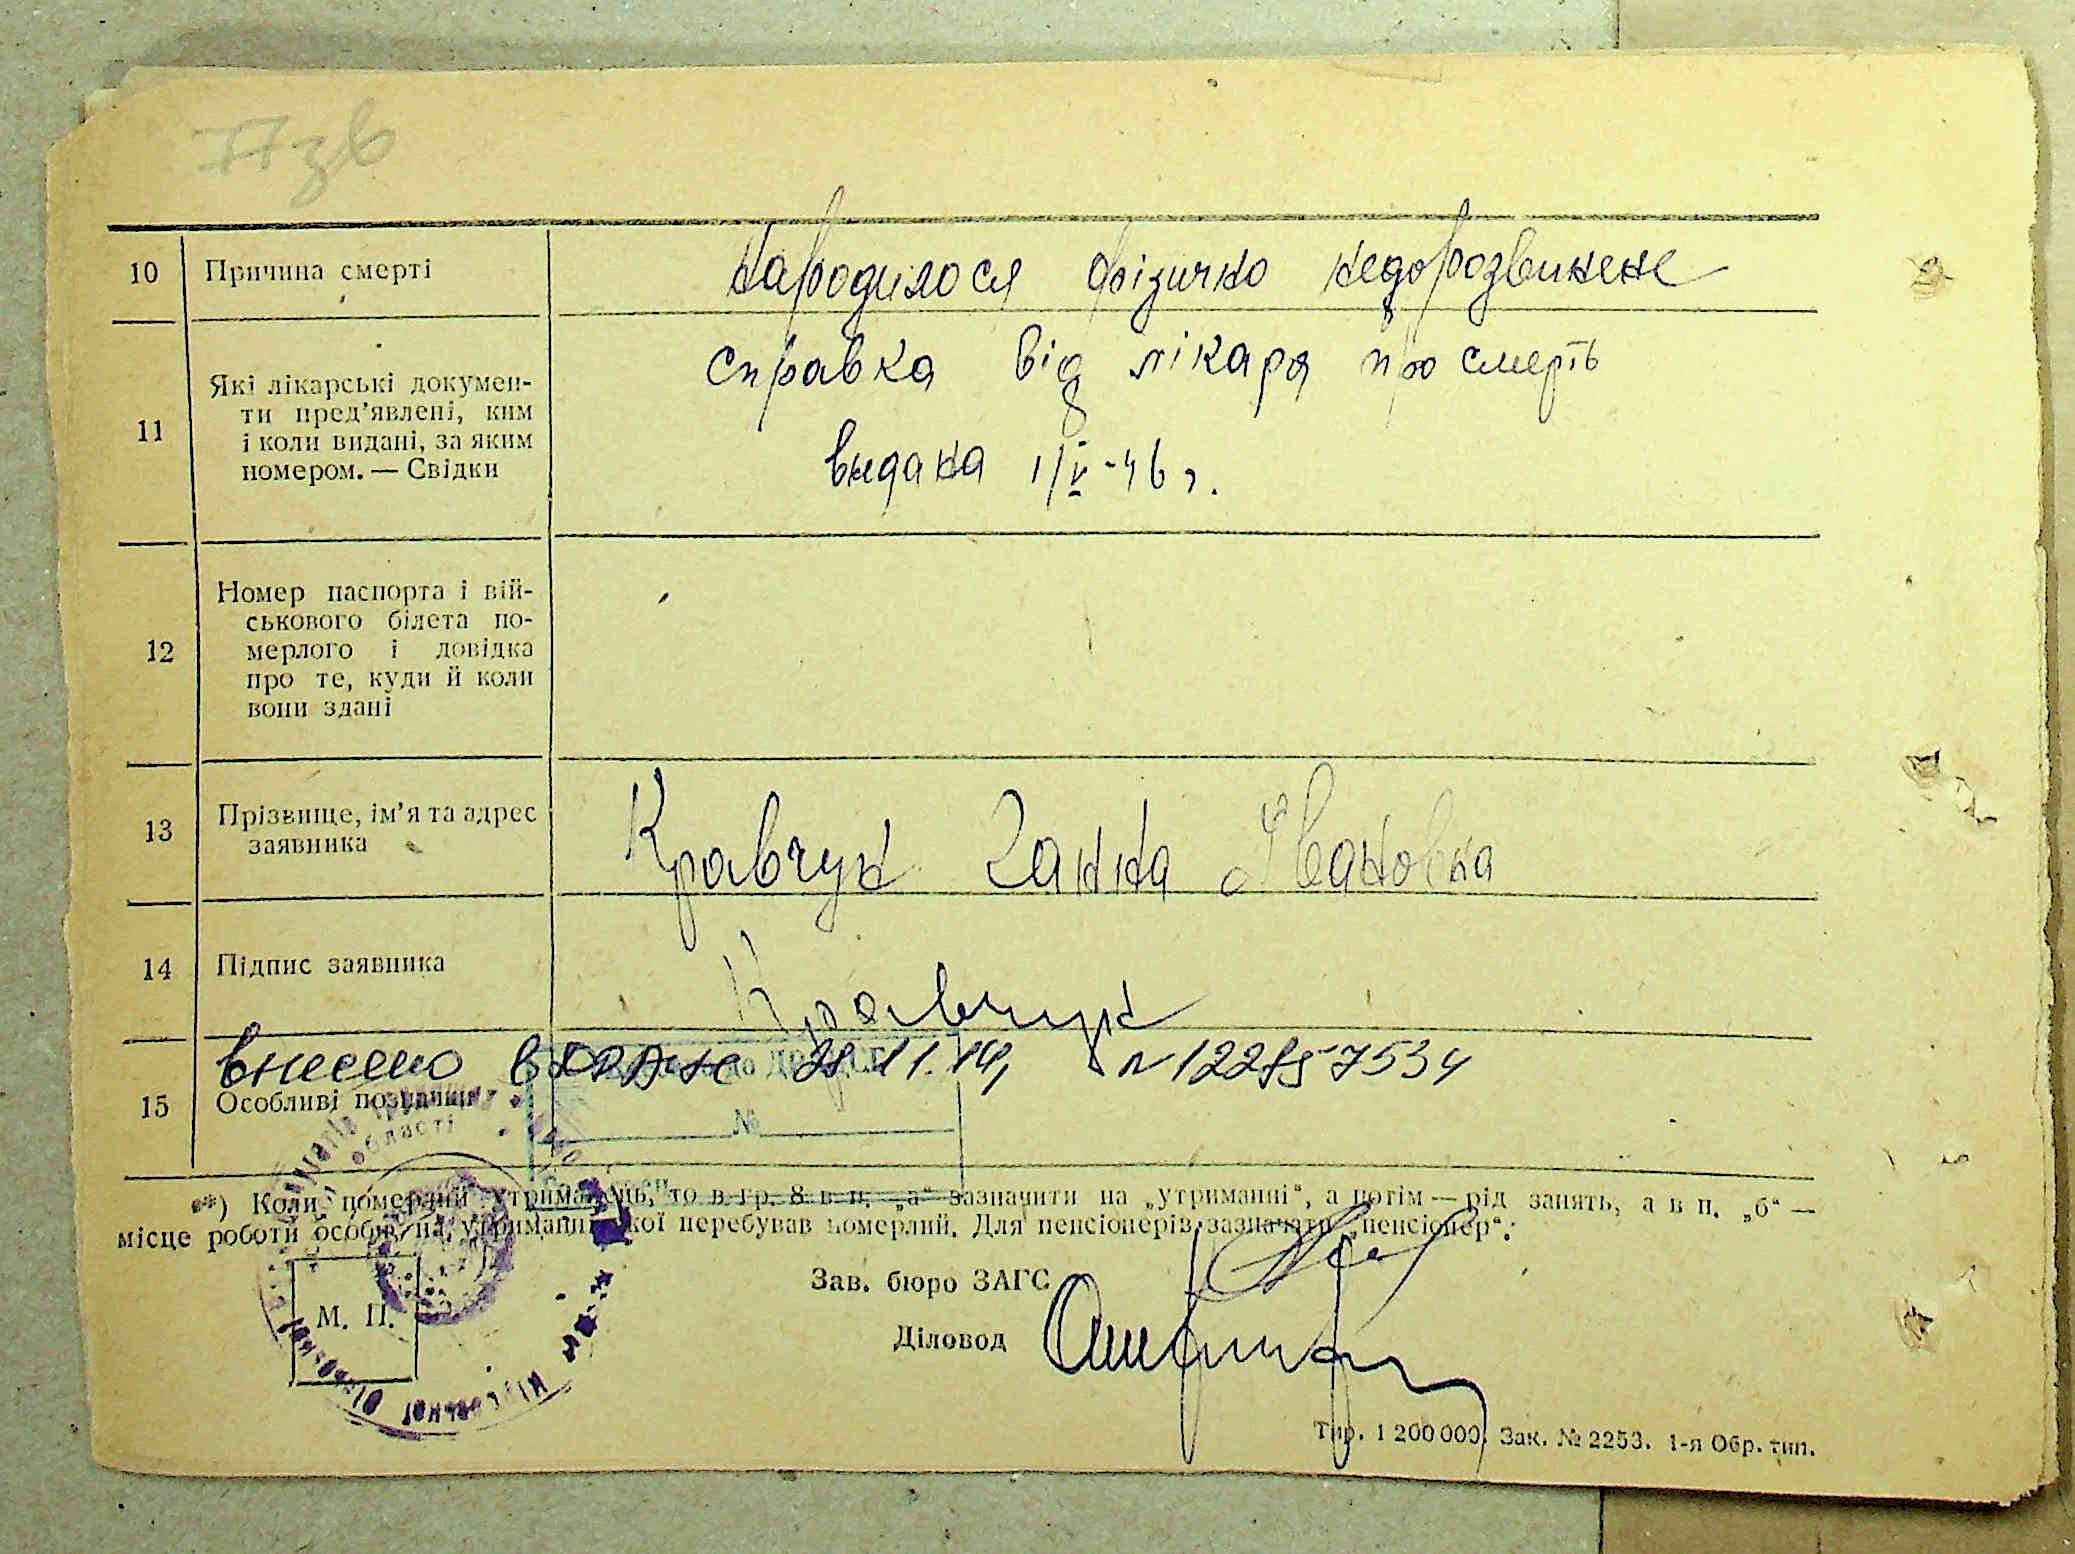 10 Причина смерті Народилося фізично недорозвинене
11 Які лікарські докумен-
ти пред'явлені, ким
і коли видані, за яким
номером. — Свідки
справка від лікаря про смерть
видана 1/V-46 г.
12 Номер паспорта і вій-
ськового білета по-
мерлого і довідка
про те, куди й коли
вони здані
13 Прізвище, ім'я та адрес
заявника
Кравчук Ганна Івановна
14 Підпис заявника Кравчук
внесено в 28.11.14, №
15 Особливі позначки
№
області
**) Коли померлий утриманець, то в гр. 8 в п. „а“ зазначити на „утриманні“, а потім — рід занять, а в п. „б“ —
місце роботи особи, на утриманні якої перебував померлий. Для пенсіонерів зазначати „пенсіонер“.
Зав. бюро ЗАГС
М. П.
Діловод
Тир. 1 200 000. Зак. № 2253. 1-я Обр. тип.